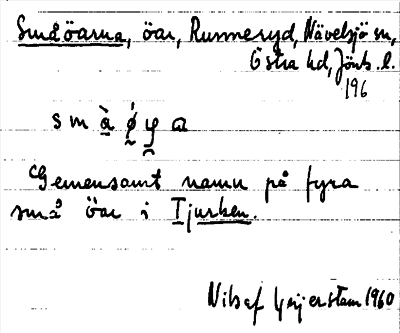 Småöarna, öar, Runneryd, Nävelsjö sn,
Östra hd, Jönk. l.
196
Gemensamt namn på fyra
små öar i Tjurken.
Nils af Geijerstam 1960